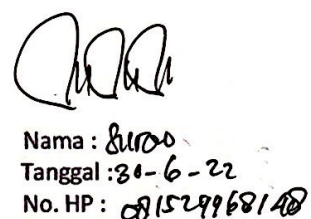 Nama :
Tanggal : 30-6-22
No. HP : 081529968148